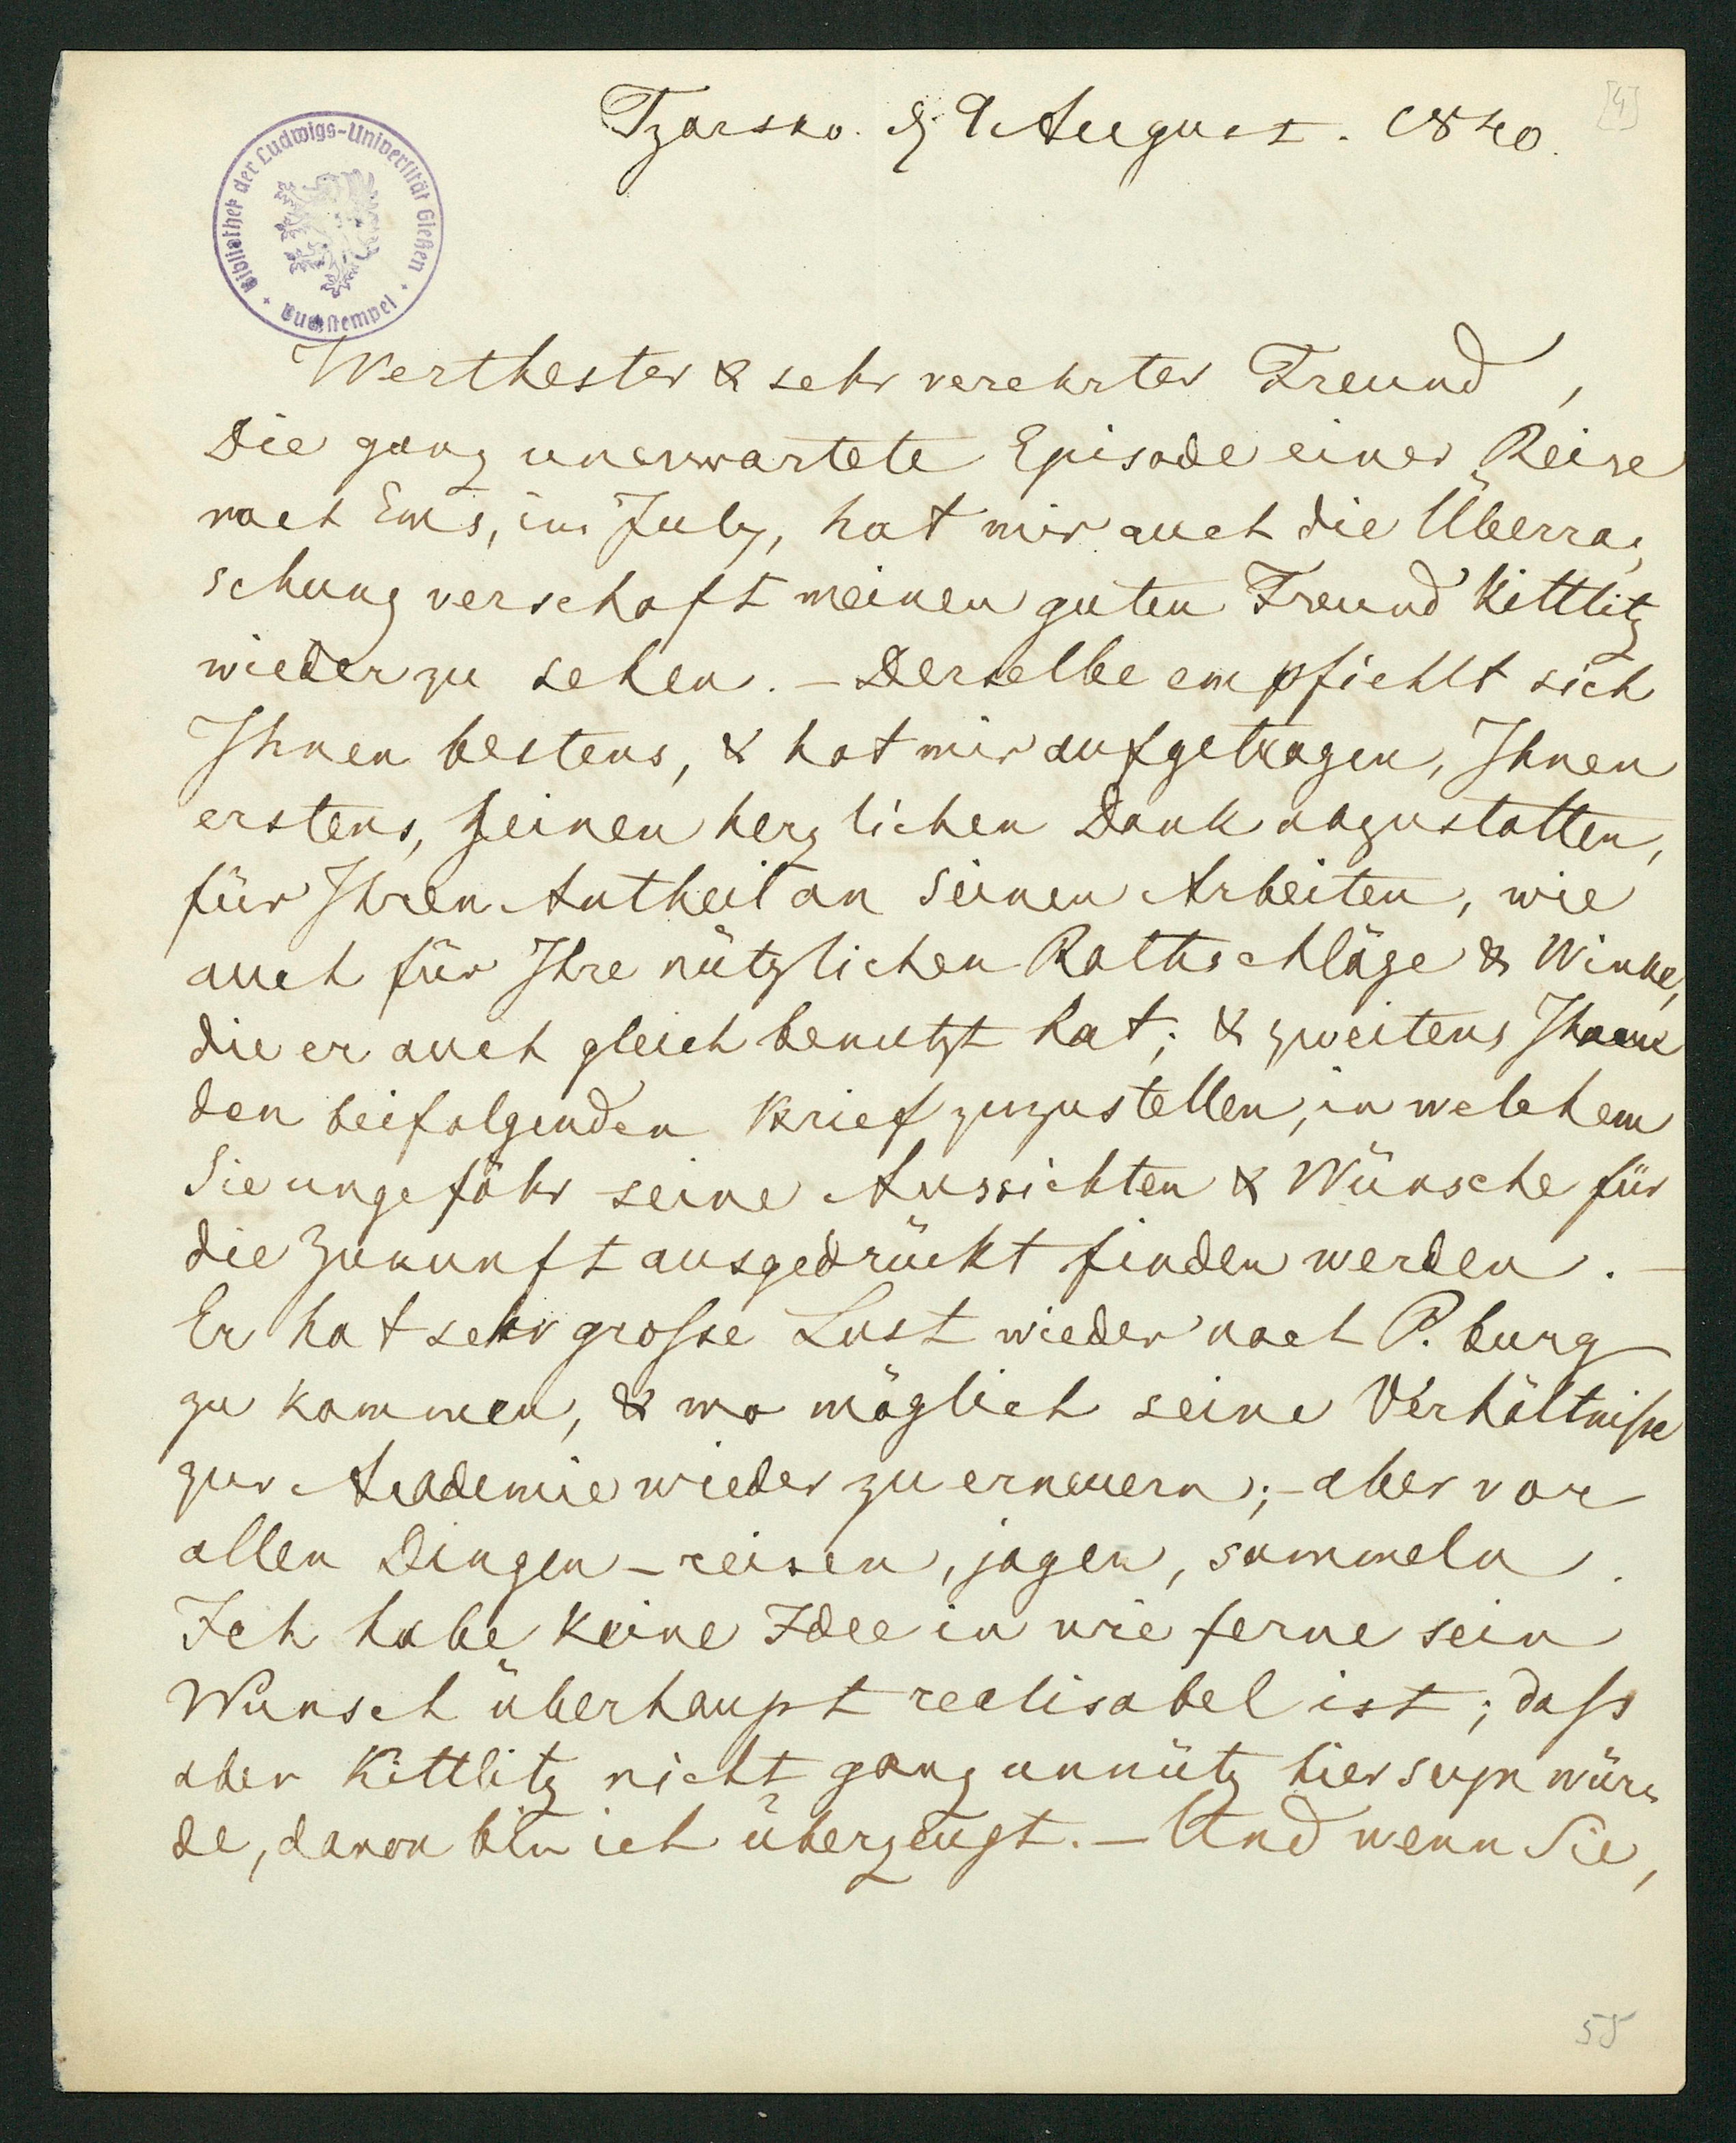 [4]
Tzarsko. d. 9 August. 1840.
Bibliothek der Ludwigs-Universität Gießen
Buchstempel
Werthester & sehr verehrter Freund,
Die ganz unerwartete Episode einer Reise
nach Ems, im July, hat mir auch die Überra-
schung verschaft meinen guten Freund Kittlitz
wieder zu sehen. – Derselbe empfiehlt sich
Ihnen bestens, & hat mir aufgetragen, Ihnen
erstens, seinen herzlichen Dank abzustatten,
für Ihren Antheil an seinen Arbeiten, wie
auch für Ihre nützlichen Rathschläge & Winke,
die er auch gleich benutzt hat; & zweitens Ihnen
den beifolgenden Brief zuzustellen, in welchem
Sie ungefähr seine Aussichten & Wünsche für
die Zukunft ausgedrückt finden werden. –
Er hat sehr große Lust wieder nach P.burg
zu kommen, & wo möglich seine Verhältniße
zur Academie wieder zu erneuern; – aber vor
allen Dingen – reisen, jagen, sammeln.
Ich habe keine Idee in wie ferne sein
Wunsch überhaupt realisabel ist; daß
aber Kittlitz nicht ganz unnütz hier seyn wür-
de, davon bin ich überzeugt. – Und wenn Sie,
55